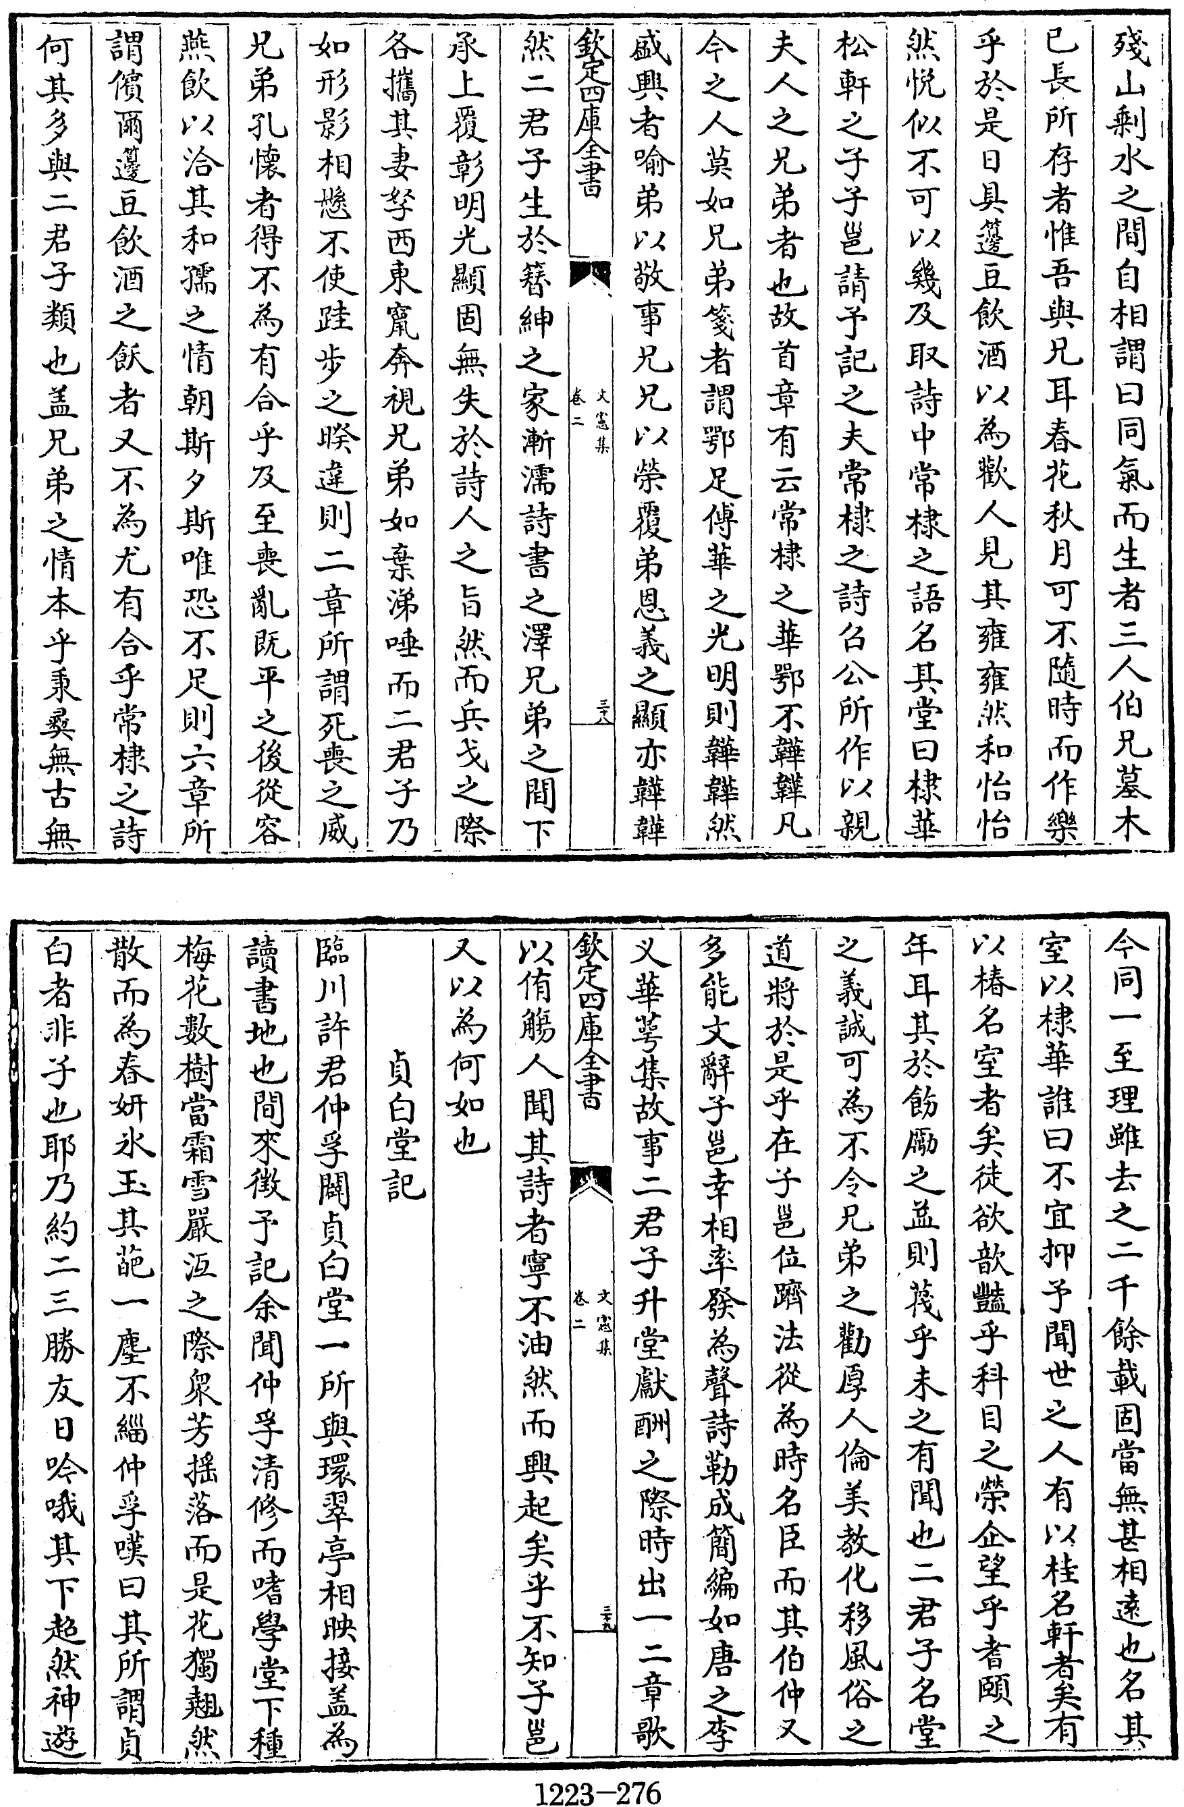 殘山剩水之間自相謂曰同氣而生者三人伯兄墓木
已長所存者惟吾與兄耳春花秋月可不隨時而作樂
乎於是日具籩豆飲酒以為歡人見其雍雍然和怡怡
然悅似不可以幾及取詩中常棣之語名其堂曰棣華
松軒之子子邕請予記之夫常棣之詩召公所作以親
夫人之兄弟者也故首章有云常棣之華鄂不韡韡凡
今之人莫如兄弟箋者謂鄂足傅華之光明則韡韡然
盛興者喻弟以敬事兄兄以榮覆弟恩義之顯亦韡韡
欽定四庫全書
文憲集
卷二
三十八
然二君子生於簪紳之家漸濡詩書之澤兄弟之間下
承上覆彰明光顯固無失於詩人之旨然而兵戈之際
各攜其妻孥西東竄奔視兄弟如棄涕唾而二君子乃
如形影相戀不使跬步之暌違則二章所謂死喪之威
兄弟孔懷者得不為有合乎及至喪亂既平之後從容
燕飲以洽其和孺之情朝斯夕斯唯恐不足則六章所
謂儐爾籩豆飲酒之飫者又不為尤有合乎常棣之詩
何其多與二君子類也盖兄弟之情本乎秉彛無古無
今同一至理雖去之二千餘載固當無甚相遠也名其
室以棣華誰曰不宜抑予聞世之人有以桂名軒者矣有
以椿名室者矣徒欲歆豔乎科目之榮企望乎耆頤之
年耳其於飭勵之益則蔑乎未之有聞也二君子名堂
之義誠可為不令兄弟之勸厚人倫美教化移風俗之
道將於是乎在子邕位躋法從為時名臣而其伯仲又
多能文辭子邕幸相率發為聲詩勒成簡編如唐之李
乂華萼集故事二君子升堂獻酬之際時出一二章歌
欽定四庫全書
文憲集
卷二
三十九
以侑觴人聞其詩者寧不油然而興起矣乎不知子邕
又以為何如也
貞白堂記
臨川許君仲孚闢貞白堂一所與環翠亭相映接盖為
讀書地也間來徵予記余聞仲孚清修而嗜學堂下種
梅花數樹當霜雪嚴沍之際衆芳揺落而是花獨翹然
散而為春妍氷玉其葩一塵不緇仲孚嘆曰其所謂貞
白者非子也耶乃約二三勝友日吟哦其下超然神遊
1223-276